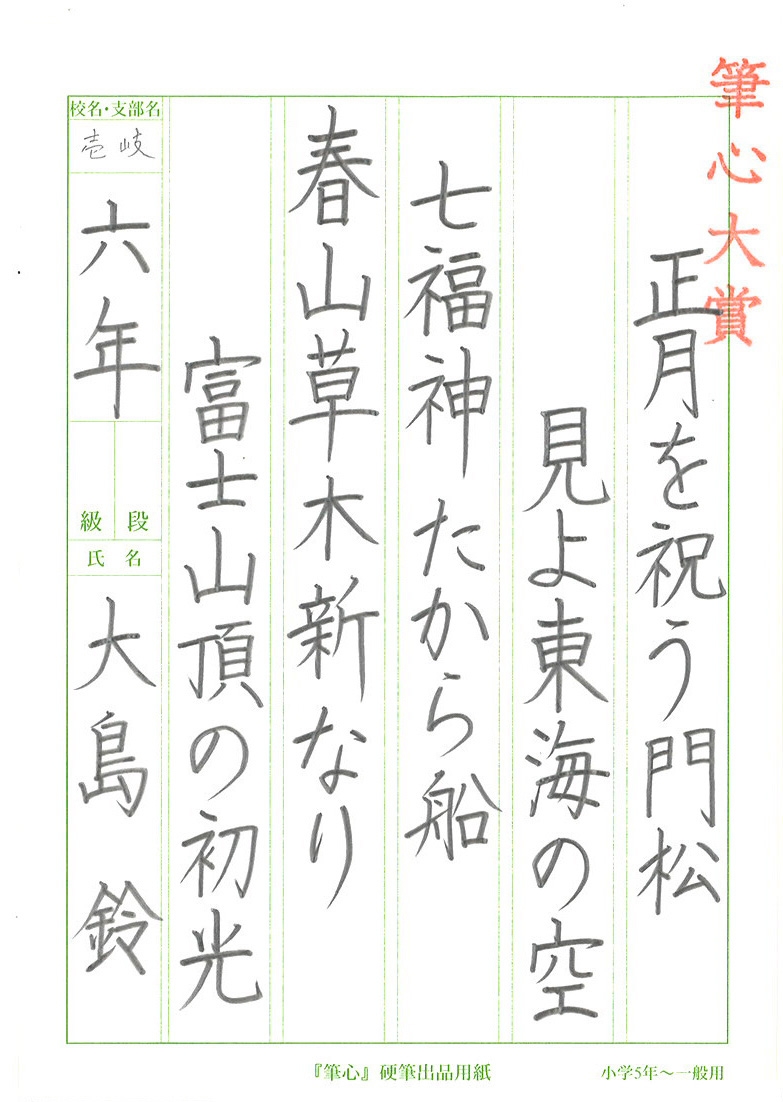 筆心大賞
正月を祝う門松
見よ東海の空
七福神たから船
春山草木新なり
富士山頂の初光
校名・支部名
壱岐
六年
級 段
氏名
大島 鈴
『筆心』硬筆出品用紙
小学5年～一般用